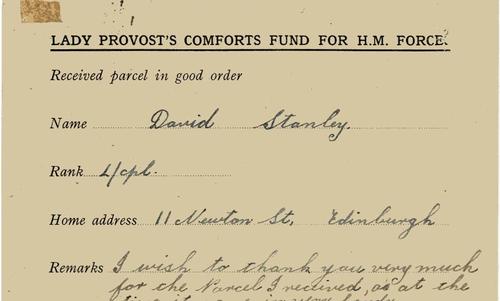 LADY PROVOST'S COMFORTS FUND FOR H.M. FORCES.
Received parcel in good order
Name David Stanley.
Rank L/cpl.
Home address 11 Newton St, Edinburgh
Remarks I wish to thank you very much
for the Parcel I received, as at the
time it